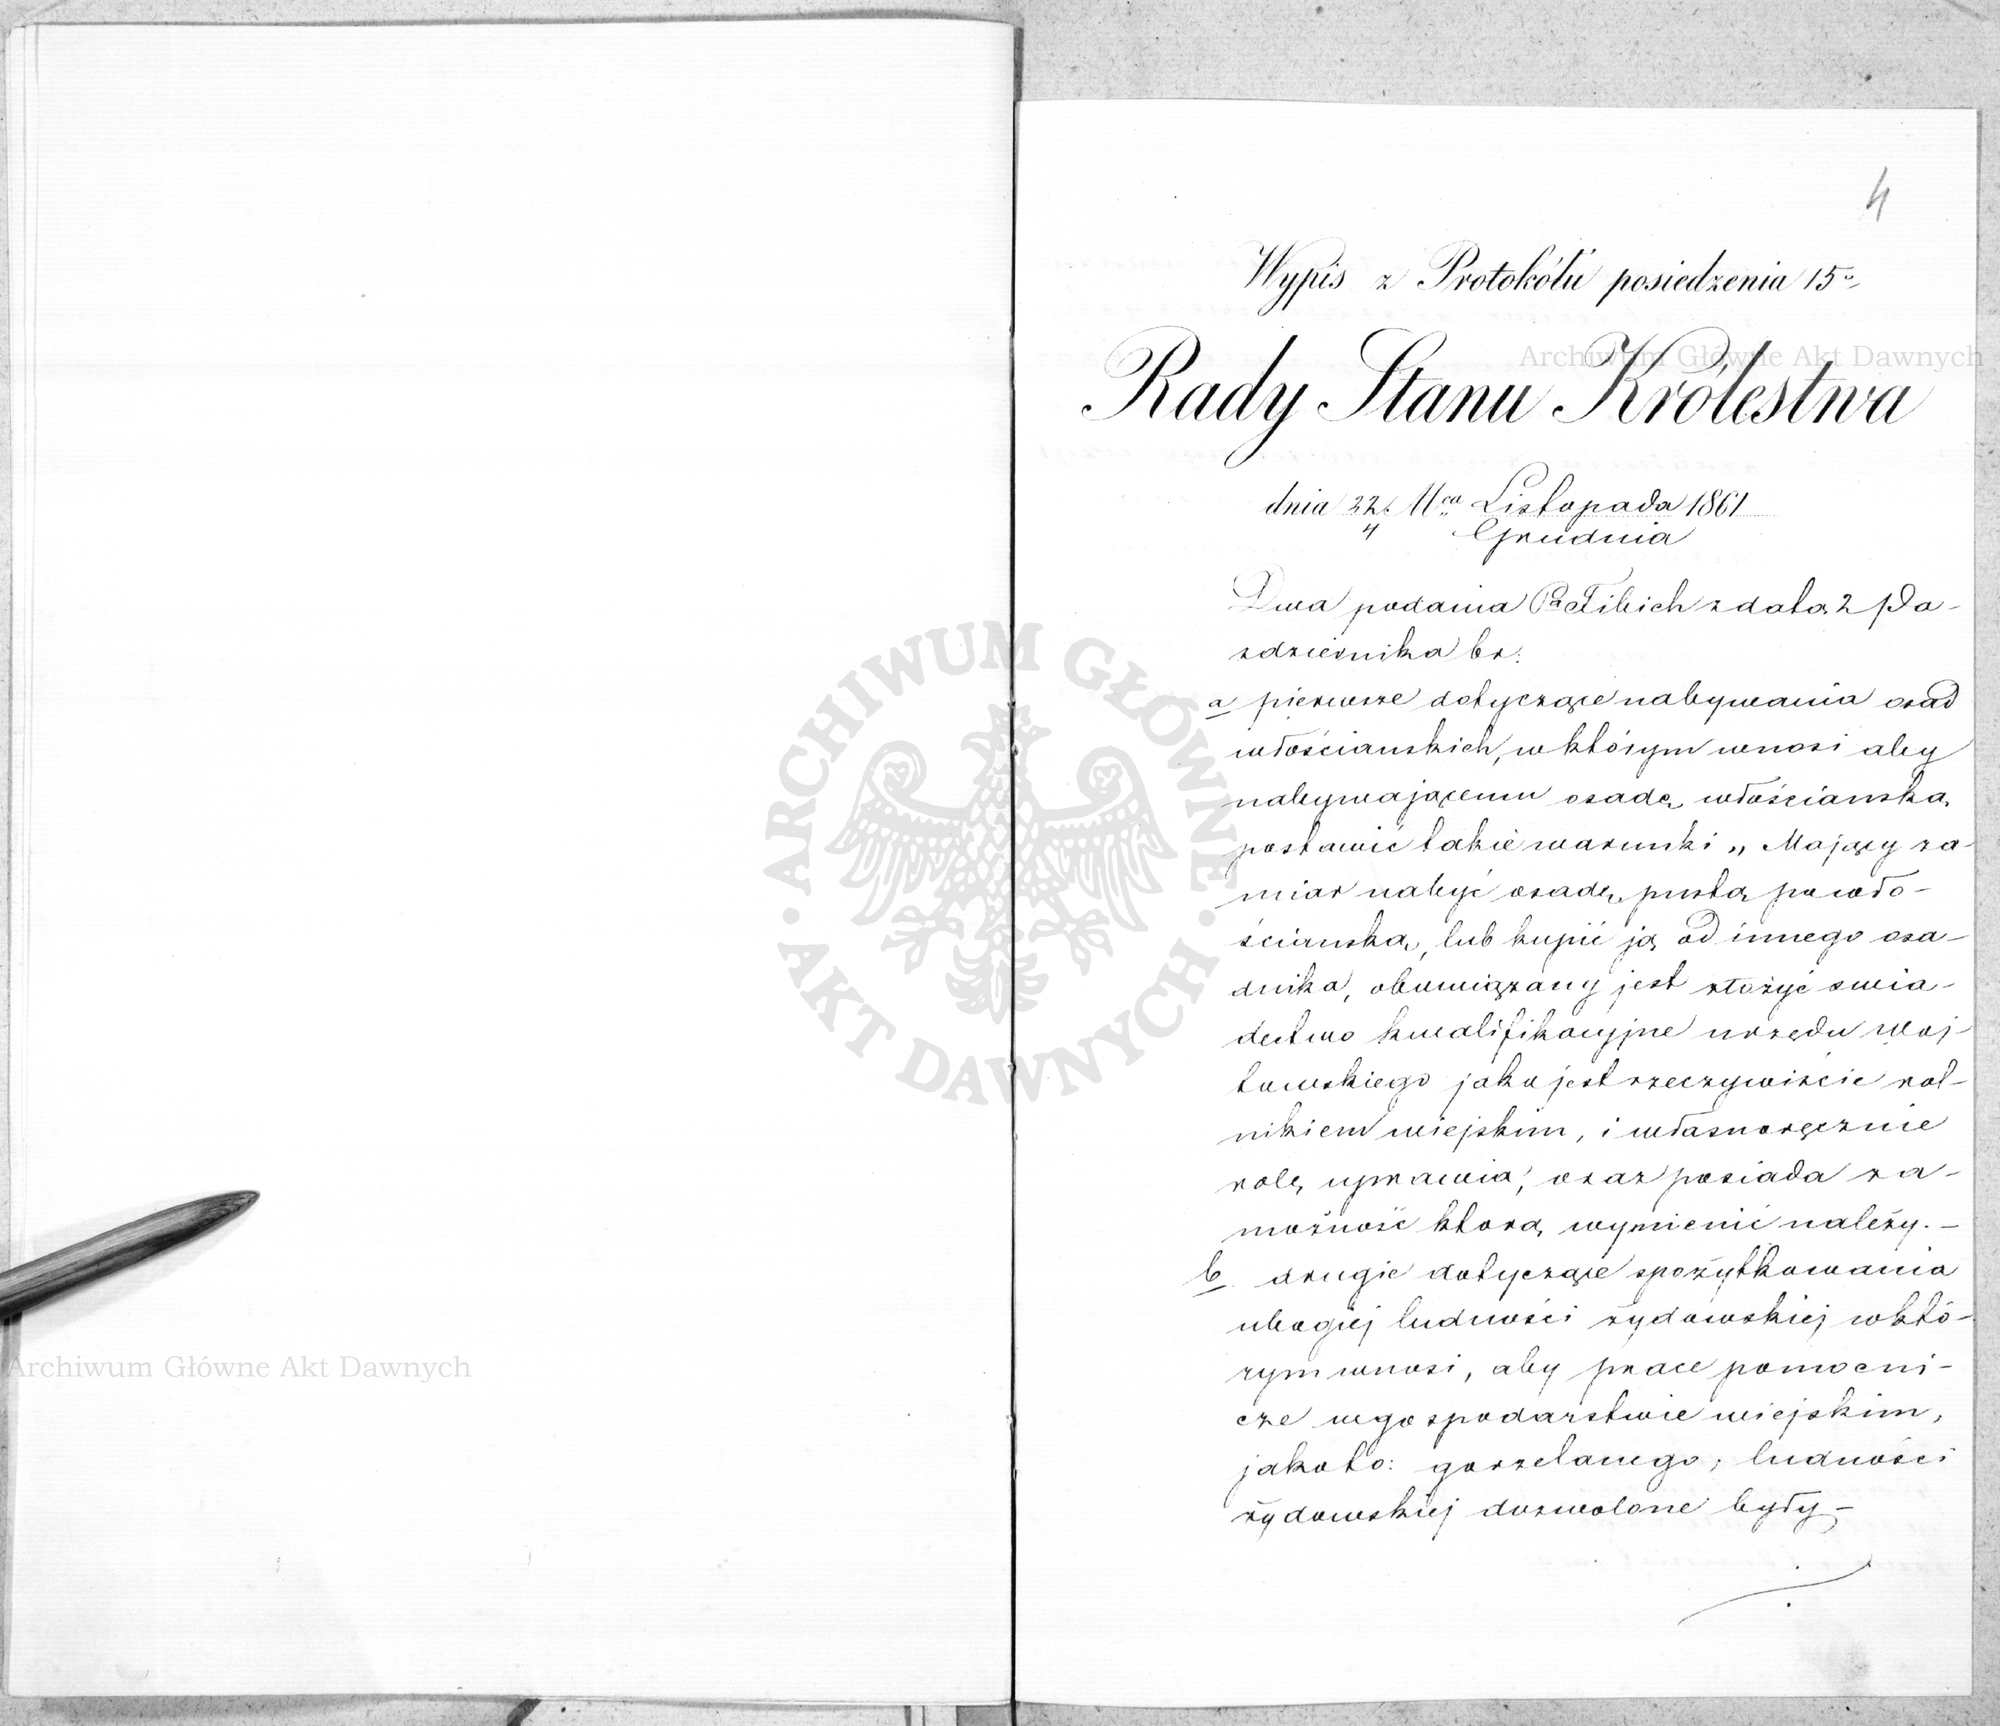 4
Wypis z Protokółu posiedzenia 15º
Rady Stanu Królestwa
dnia 22/4 Mca Listopada 1861
Grudnia
Dwa podania Pa Tibich z datą 2 Pa-
zdziernika br:
a pierwsze dotyczące nabywania osad
włościanskich, w którym wnosi aby
nabywającemu osadę włościanską
postawić takie warunki „Mający za-
miar nabyć osadę pustą po wło-
ściańską, lub kupić ją od innego osa-
dnika, obowiązany jest złożyć swia-
dectwo kwalifikacyjne urzędu woj-
towskiego jako jest rzeczywiście rol-
nikiem wiejskim, i własnoręcznie
rolę uprawia, oraz posiada za-
możność ktorą wymienić należy. –
b drugie dotyczące spożytkowania
ubogiej ludności żydowskiej w któ-
rym wnosi, aby prace pomocni-
cze w gospodarstwie wiejskim,
jakoto: gorzelanego, ludności
żydowskiej dozwolone były –
Archiwum Główne Akt Dawnych
Archiwum Główne Akt Dawnych
ARCHIWUM GŁÓWNE · AKT DAWNYCH ·